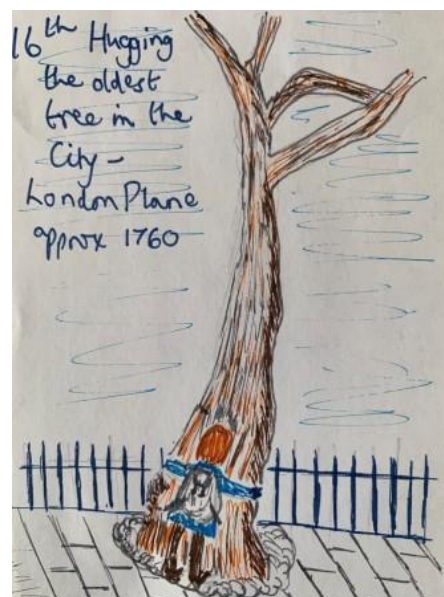 16th Hugging
the oldest
tree in the
City -
London Plane
approx 1760